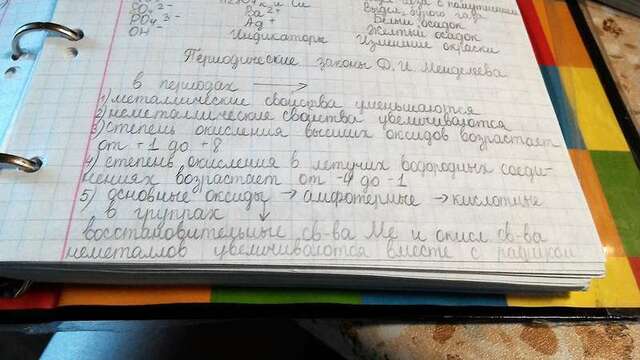 H2SO4 к и Cu
SO4 2- Ba 2+ Белый осадок
PO4 3- Ag + Желтый осадок
OH - Индикаторы Изменение окраски
Периодические законы Д. И. Менделеева
в периодах →
1) металлические свойства уменьшаются
2) неметаллические свойства увеличиваются
3) степень окисления высших оксидов возрастает
от +1 до +8
4) степень окисления в летучих водородных соеди-
нениях возрастает от -4 до -1
5) основные оксиды → амфотерные → кислотные
в группах ↓
восстановительные св-ва Me и окисл св-ва
неметаллов увеличиваются вместе с радиусом